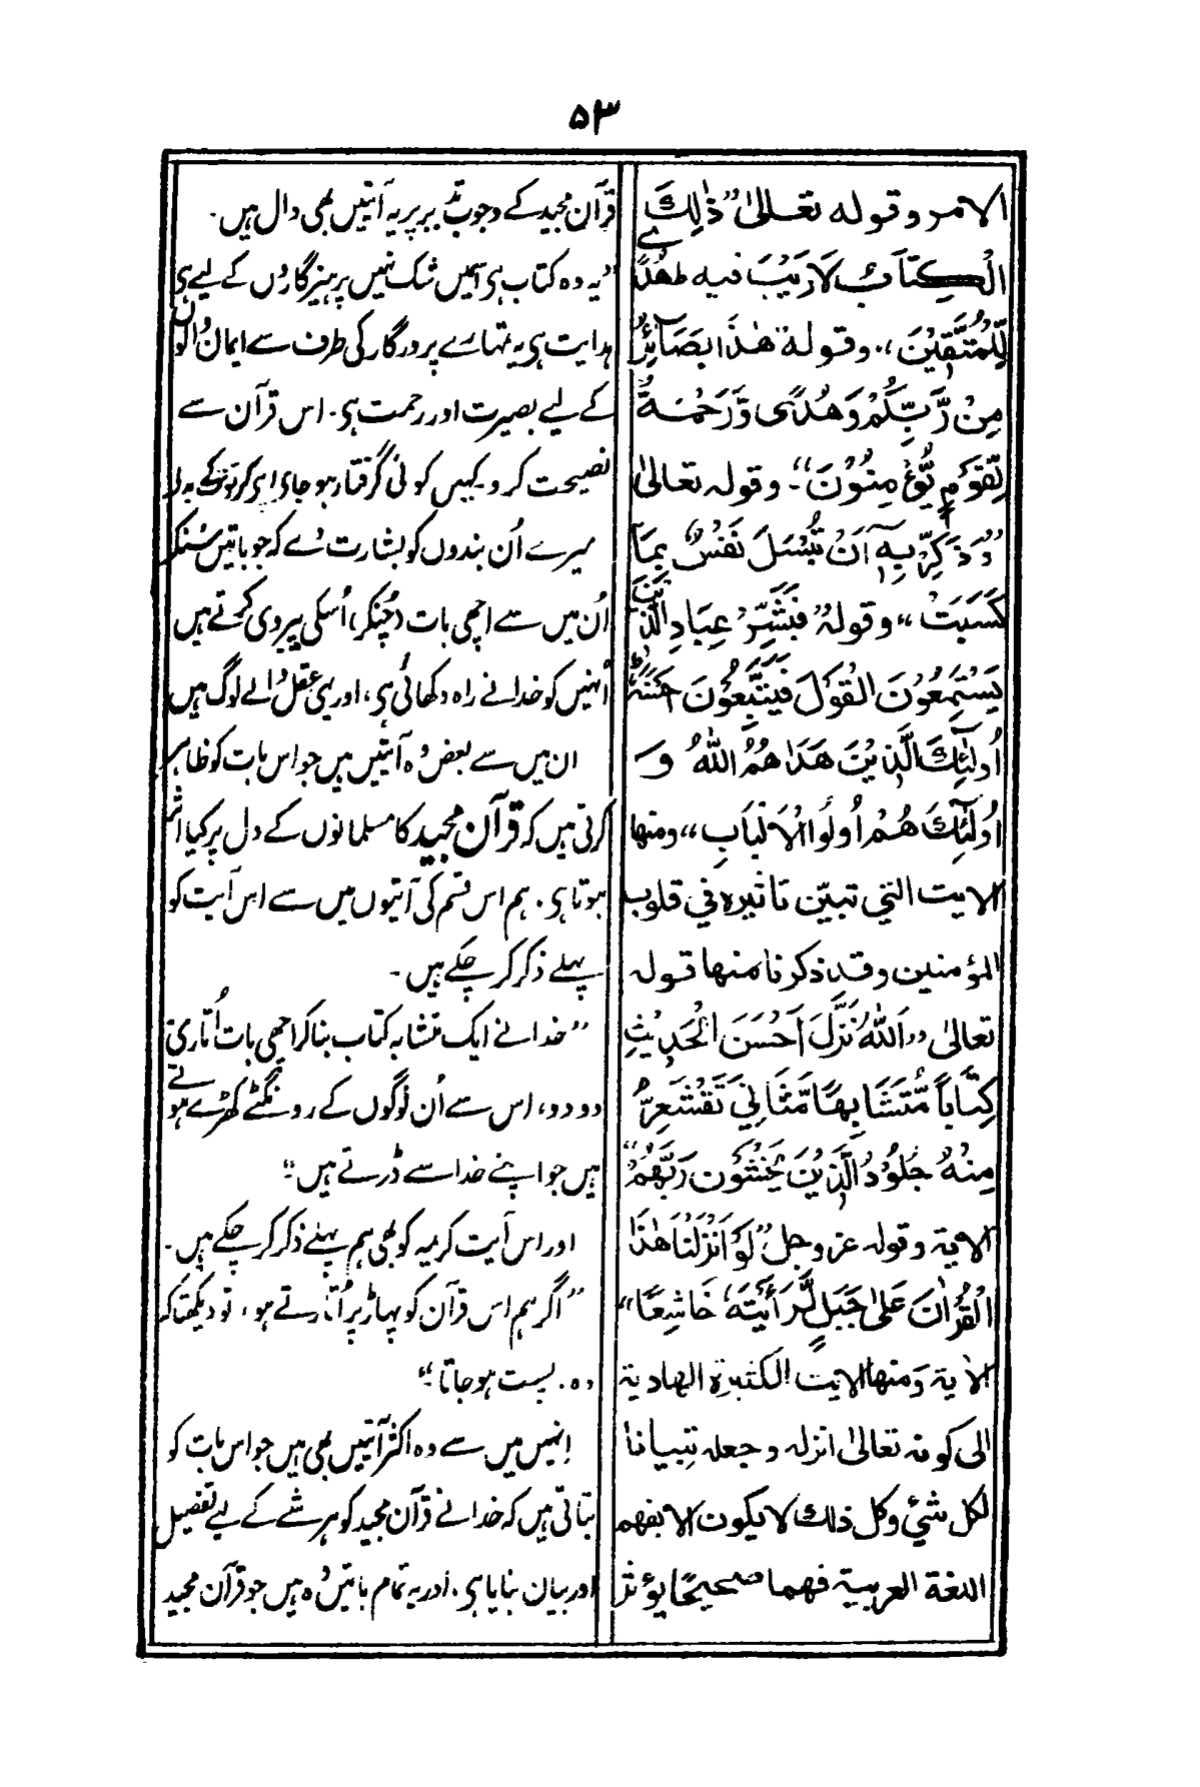 ۵۳
الامر وقوله تعالىٰ ”ذٰلِكَ
الْكِتَابُ لَا رَيْبَ فيه هُدًى
لِّلْمُتَّقِيْنَ“، وقوله هٰذَا بَصَآئِرُ
مِنْ رَّبِّكُمْ وَهُدًى وَّرَحْمَةٌ
لِّقَوْمٍ يُّؤْمِنُوْنَ“۔ وقوله تعالىٰ
”وَذَكِّرْ بِهٖٓ اَنْ تُبْسَلَ نَفْسٌ بِمَا
كَسَبَتْ“ وقوله ”فَبَشِّرْ عِبَادِ الَّذِيْنَ
يَسْتَمِعُوْنَ الْقَوْلَ فَيَتَّبِعُوْنَ اَحْسَنَهٗ
اُولٰٓئِكَ الَّذِيْنَ هَدَاهُمُ اللّٰهُ وَ
اُولٰٓئِكَ هُمْ اُولُوا الْاَلْبَابِ“، ومنها
الايت التي تبيّن تاثيره في قلوب
المؤمنين وقد ذكرنا منها قوله
تعالىٰ ”اَللّٰهُ نَزَّلَ اَحْسَنَ الْحَدِيْثِ
كِتَاباً مُّتَشَابِهًا مَّثَانِيَ تَقْشَعِرُّ
مِنْهُ جُلُوْدُ الَّذِيْنَ يَخْشَوْن رَبَّهُمْ“
الاية وقوله عز وجل ”لَوْ اَنْزَلْنَا هٰذَا
الْقُرْاٰنَ عَلىٰ جَبَلٍ لَّرَاَيْتَهٗ خَاشِعًا“
الاٰية وَمنها الايت الكثيرة الهادية
الى كونه تعالىٰ انزله وجعله تِبيانا
لكل شئ وكل ذلك لا يكون الا بفهم
اللغة العربية فهما صحيحًا يؤثر
قرآن مجید کے وجوب تدبر پر یہ آیتیں بھی دال ہیں۔
”یہ وہ کتاب ہی اسمیں شک نہیں پرہیزگاروں کے لیے ہی
ہدایت ہی یہ تمہارے پروردگار کی طرف سے ایمان والوں
کے لیے بصیرت اور رحمت ہی۔ اس قرآن سے
نصیحت کرو کہیں کوئی گرفتار ہو جاؤ اپر کرتوت کے بدلہ
میرے اُن بندوں کو بشارت دے کہ جو باتیں سُنکر
اُن میں سے اچھی بات (چُنکر) اُسکی پیروی کرتے ہیں
اُنہیں کو خدا نے راہ دکھائی ہی، اور یہی عقل والے لوگ ہیں
ان میں سے بعض وہ آیتیں ہیں جو اس بات کو ظاہر
کرتی ہیں کہ قرآن مجید کا مسلمانوں کے دل پر کیا اثر
ہوتا ہی۔ ہم اس قسم کی آیتوں میں سے اس آیت کو
پہلے ذکر کر چکے ہیں۔
”خدا نے ایک متشابہ کتاب بنا کر اچھی بات اُتاری
دو دو، اس سے اُن لوگوں کے رونگٹے کھڑے ہوتے
ہیں جو اپنے خدا سے ڈرتے ہیں“
اور اس آیت کریمہ کو بھی ہم پہلے ذکر کر چکے ہیں۔
”اگر ہم اس قرآن کو پہاڑ پر اُتارتے ہو، تو دیکھتا کہ
وہ۔ پست ہو جاتا“
اِنہیں میں سے وہ اکثر آیتیں بھی ہیں جو اس بات کو
بتاتی ہیں کہ خدا نے قرآن مجید کو ہر شے کے لیے تفصیل
اور بیان بنایا ہی۔ اور یہ تمام باتیں وُہ ہیں جو قرآن مجید